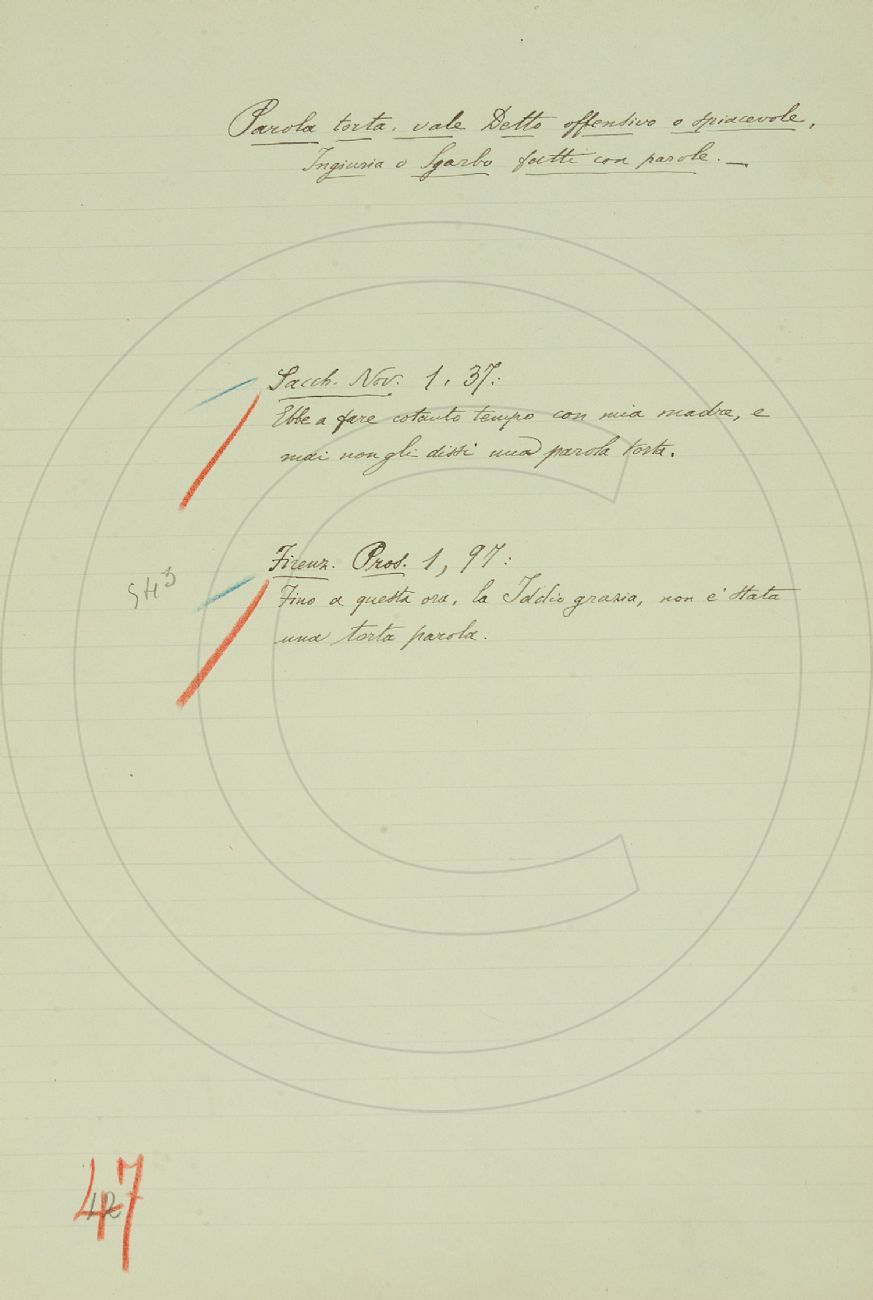 Parola torta. vale Detto offensivo o spiacevole,
Ingiuria o Sgarbo fatti con parole. —
Sacch. Nov. 1. 37.:
Ebbe a fare cotanto tempo con mia madre, e
mai non gli dissi una parola torta.
Firenz. Pros. 1, 97:
543
Fino a questa ora, la Iddio grazia, non è stata
una torta parola.
47